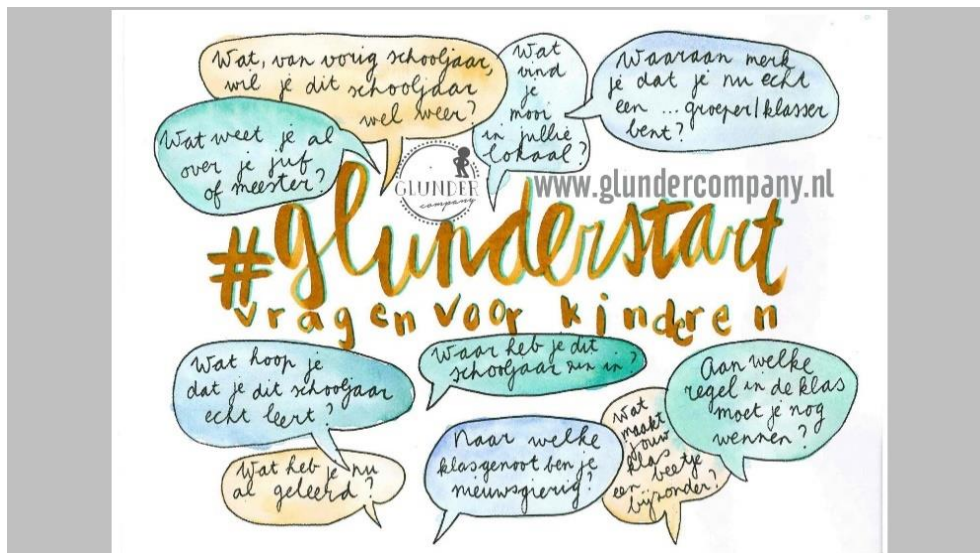 Wat, van vorig schooljaar,
wil je dit schooljaar
wel weer?
Wat
vind
je
mooi
in jullie
lokaal?
Waaraan merk
je dat je nu echt
een ... groeper/klasser
bent?
Wat weet je al
over je juf
of meester?
GLUNDER
company
www.glundercompany.nl
#glunderstart
vragen voor kinderen
Wat hoop je
dat je dit schooljaar
echt leert?
Waar heb je dit
schooljaar zin in?
Aan welke
regel in de klas
moet je nog
wennen?
Wat heb je nu
al geleerd?
Naar welke
klasgenoot ben je
nieuwsgierig?
Wat
maakt
jouw
klas
een beetje
bijzonder?